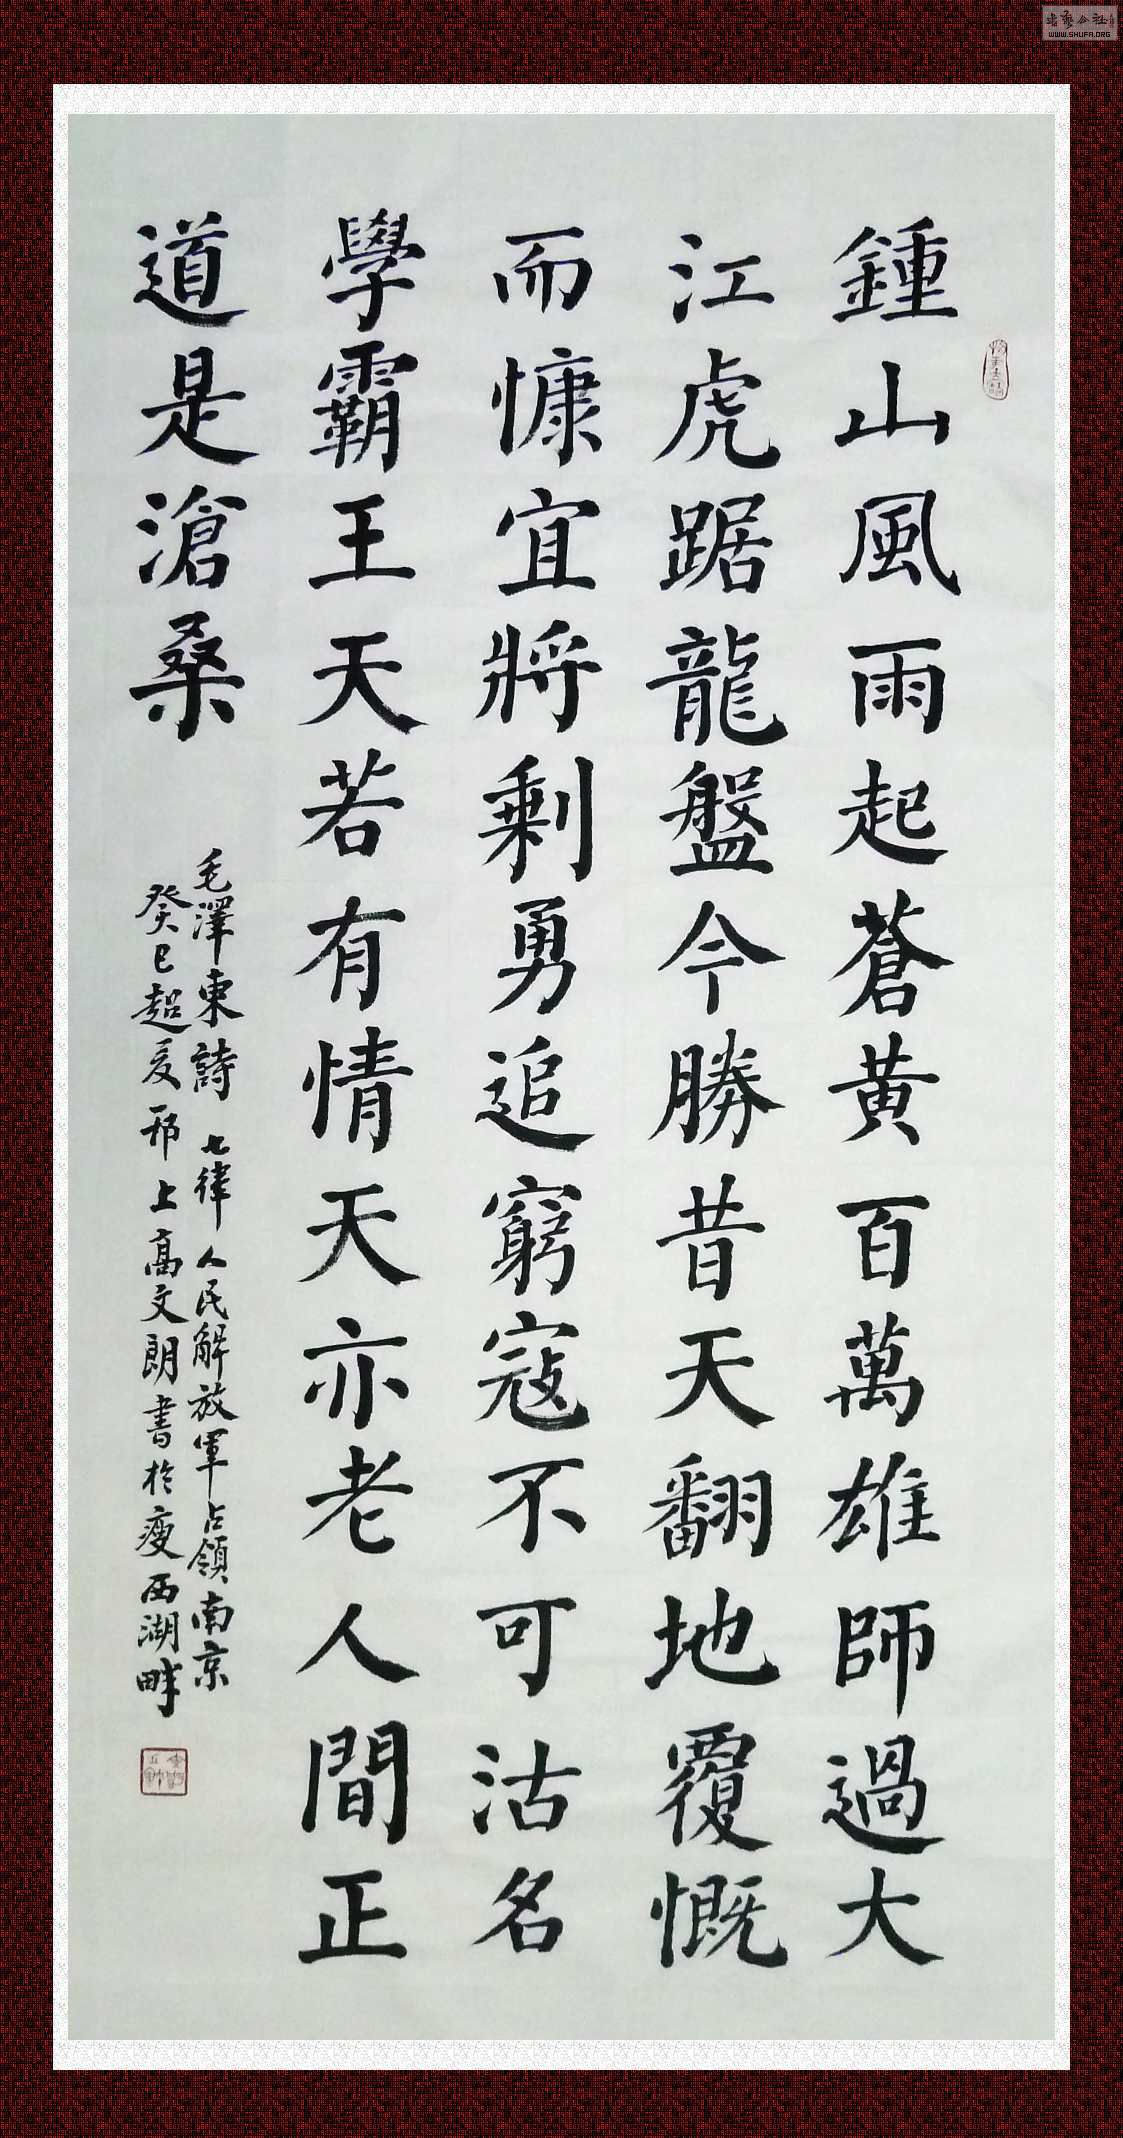 鍾山風雨起蒼黃百萬雄師過大
江虎踞龍盤今勝昔天翻地覆慨
而慷宜將剩勇追窮寇不可沽名
學霸王天若有情天亦老人間正
道是滄桑
毛澤東詩 七律 人民解放軍占領南京
癸巳超夏邗上高文朗書於瘦西湖畔
書藝公社
WWW.SHUFA.ORG